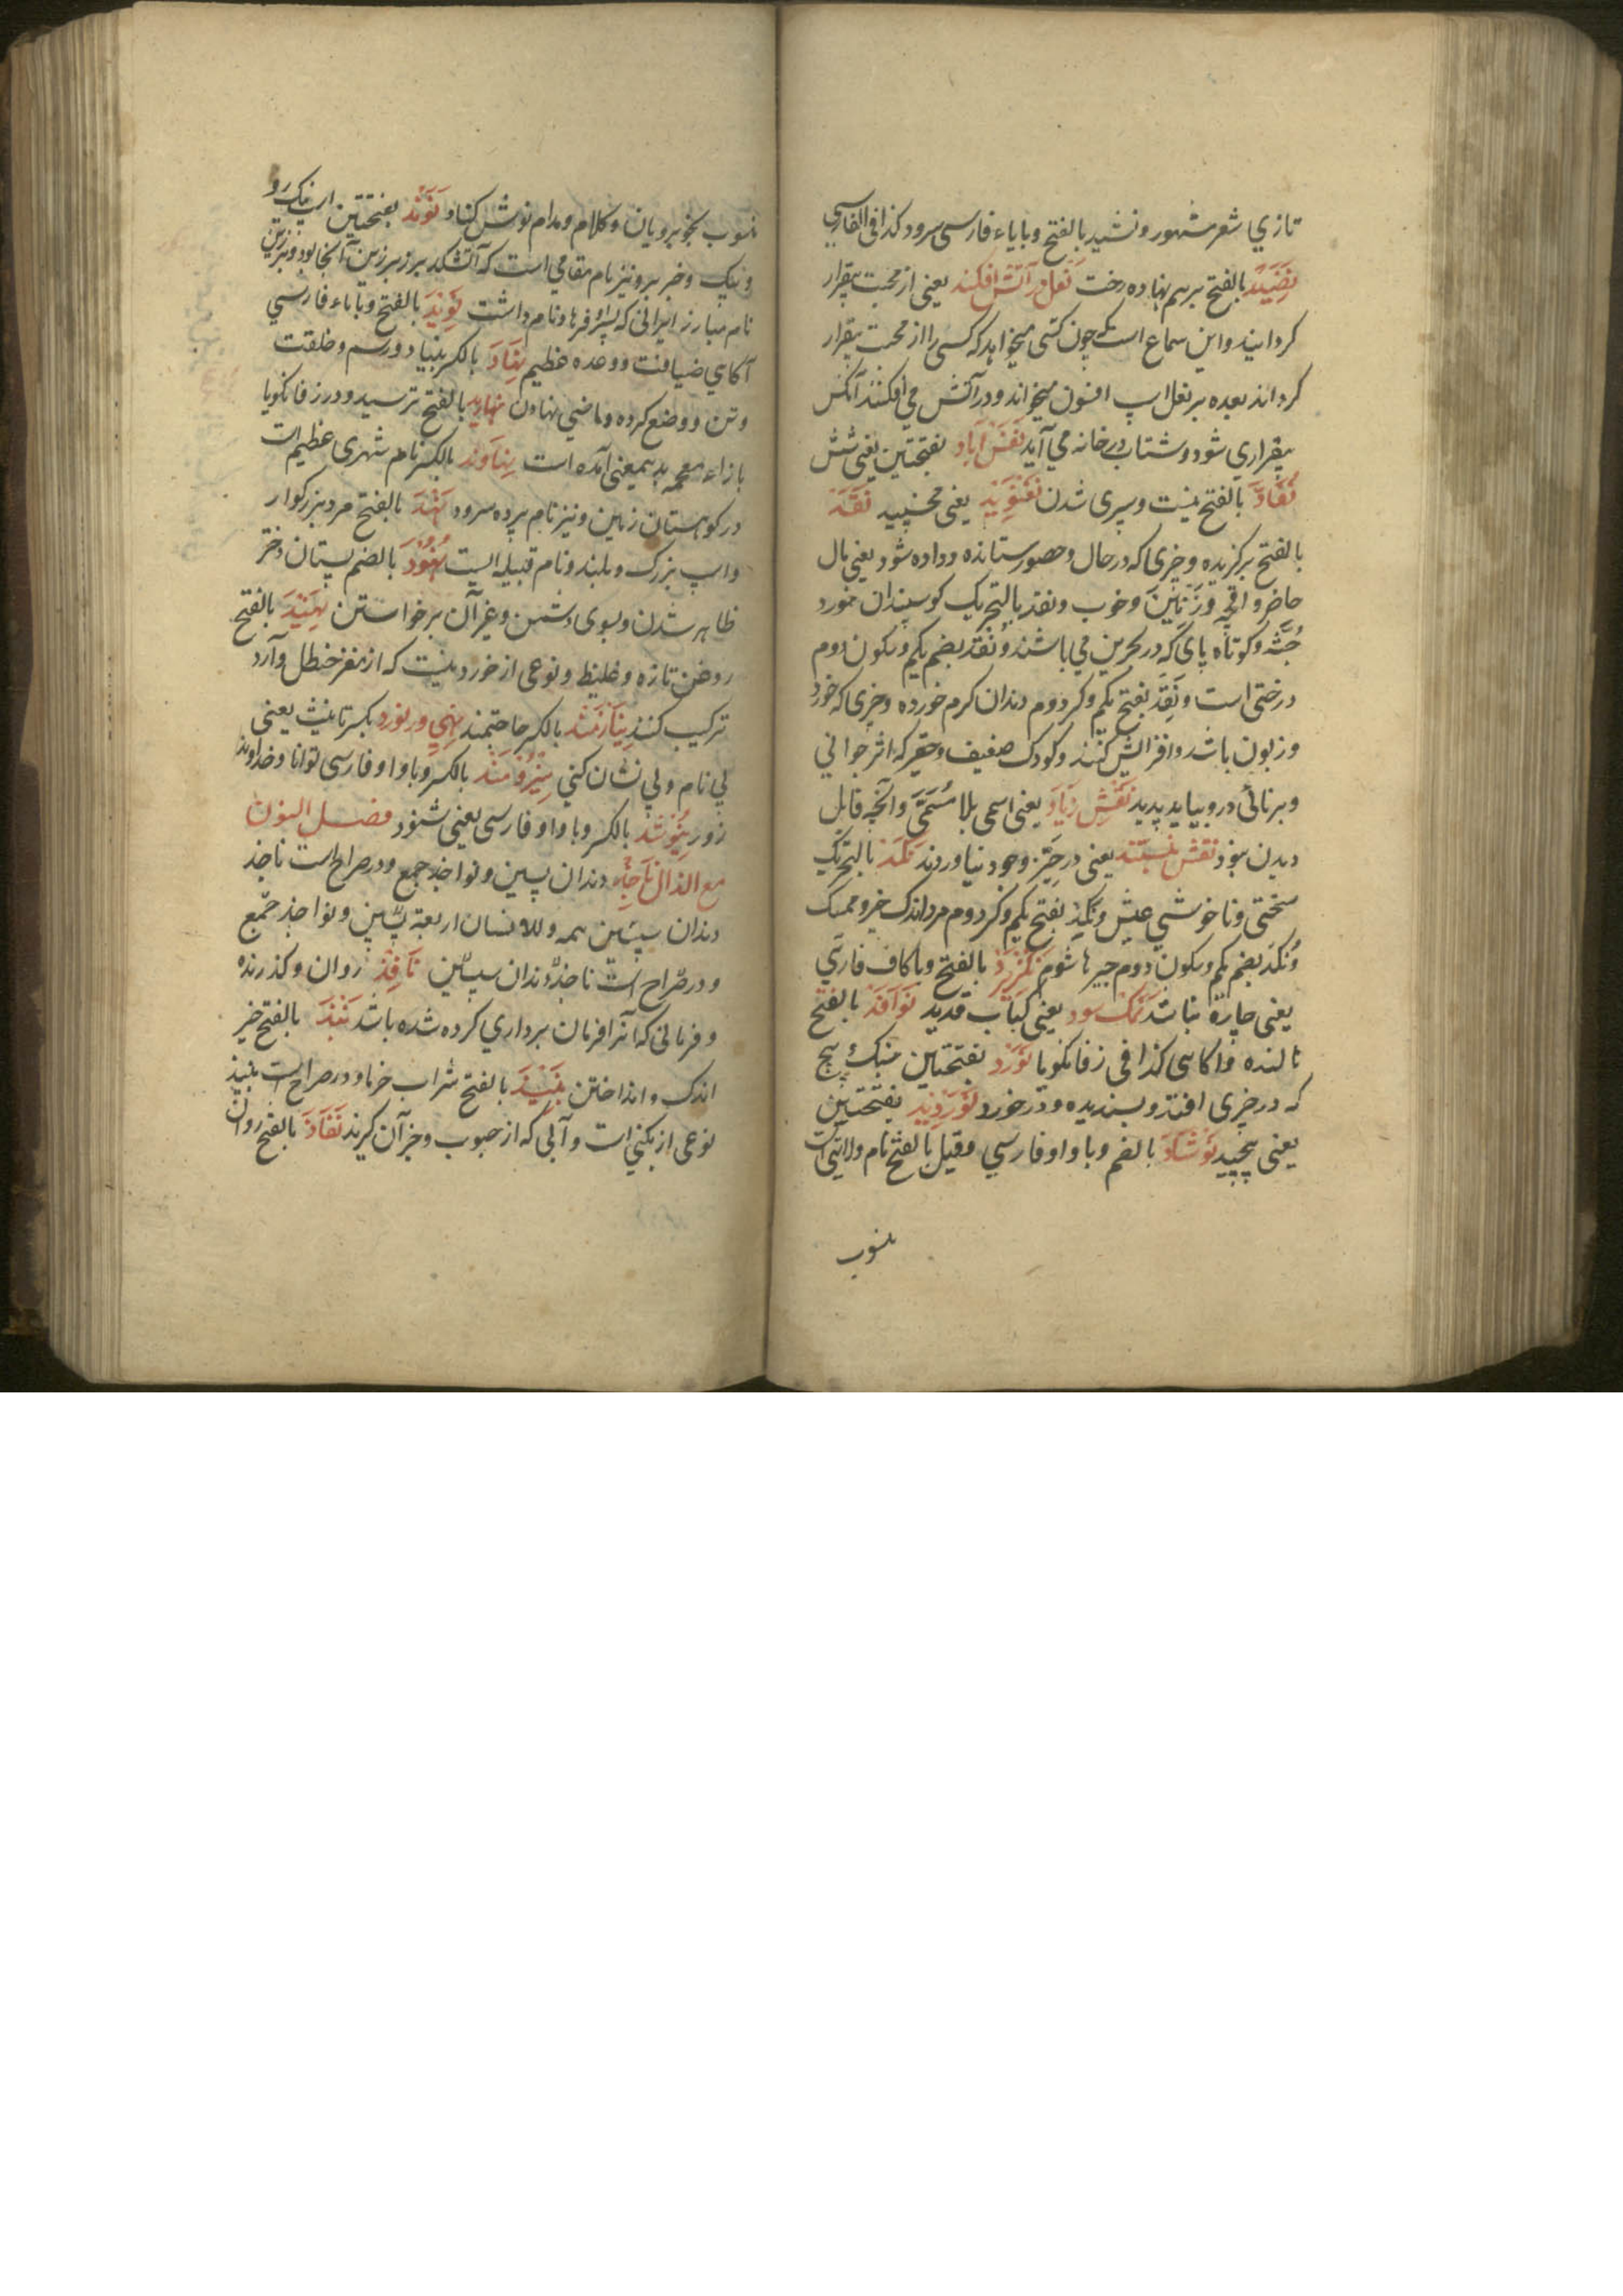 تازي شعر مشهور و نشید بالفتح و بایاء فارسی سرود کذا فی الفارسی
نَضِیْد بالفتح برهم نهاده رخت نعل در آتش افکند یعنی از محبت بیقرار
کردانید و این سماع است که چون کسی میخواهد که کسی را از محبت بیقرار
کرداند بعده بر نعل اسپ افسون میخواند و در آتش می افکنند آنکس
بیقراری شود و شتاب در خانه می آید نَفَس آباد بفتحتین یعنی شش
نَفَاد بالفتح نیست و سپری شدن نَغْنَوِیْد یعنی نخسپید نَقْد
بالفتح برکزیده و چیزی که در حال و حضور ستانده و داده شود یعنی مال
حاضر و اقچه و زرّین و خوب و نقد بالتحریک کوسپندان خورد
جُثّه و کوتاه پای که در بحرین می باشند و نُقْد بضم یکم و سکون دوم
درختی است و نَقِد بفتح یکم و کسر دوم دندان کرم خورده و چیزی که خورد
و زبون باشد و افزایش نکند و کودک ضعیف و حقیر که اثر جوانی
و برنائی در و بیاید پدید نَقْشِ زیاد یعنی اسمی بلا مُسَمَّی و آنچه قابل
دیدن نبود نقش نبستند یعنی در حیّز وجود نیاوردند نَکَد بالتحریک
سختی و ناخوشی عیش و نَکِد بفتح یکم و کسر دوم مرد اندک خیر و ممسک
و نُکْد بضم یکم و سکون دوم چیرها شوم نَکْزِیْرَد بالفتح و با کاف فارسی
یعنی چاره نباشد نمک سود یعنی کباب قدید نَوَافَد بالفتح
نالنده و اکاسی کذا فی زفانکویا نَوَرْد بفتحتین
که در چیزی افتد و پسندیده و در خورد نَوَرْدِیْد بفتحتین
یعنی پیچید نَوْشَاد بالضم و با واو فارسی و قیل بالفتح نام ولایتی است
منسوب
منسوب بخوبرویان و کلام و مدام نوش کناد نَوَنْد بفتحتین اسپ نیک رو
و پیک و خبر بر و نیز نام مقامی است که آتشکده برزین آنجا بود و نیز
نام مبارز ایرانی که پسر فرهاد نام داشت نَوِیْد بالفتح و با یاء فارسی
آکاهی ضیافت و وعده عظیم نِهَاد بالکسر بنیاد و رسم و خلقت
و تن و وضع کرده و ماضی نهادن نهازید بالفتح ترسید و در زفانکویا
با زاء معجمه بدیمعنی آمده است نِهَاوَنْد بالکسر نام شهری عظیم است
در کوهستان زمین و نیز نام پرده سرود نَهْد بالفتح مرد بزرکوار
و اسپ بزرک و بلند و نام قبیله ایست نُهُوْد بالضم پستان دختر
ظاهر شدن و بسوی دشمن و غیر آن برخواستن نَهِیْد بالفتح
روغن تازه و غلیظ و نوعی از خوردنیست که از مغز حنظل و آرد
ترکیب کنند نِیَازْمَنْد بالکسر حاجتمند نهی ور نورد بکسرتا ینث یعنی
بی نام و بی نشان کنی نِیْرُوْمَنْد بالکسر و با واو فارسی توانا و خداوند
زور نِیُوْشَد بالکسر و با واو فارسی یعنی شنود فصل النون
مع الذال نَاجِذ دندان پسین و نواجذ جمع و در صراح است ناجذ
دندان پسین همه و للانسان اربعة پسین و نواجذ جمع
و در صراح است ناجذ دندان پسین نَافِذ روان و کذرنده
و فرمانی که آنرا فرمان برداری کرده شده باشد نَبْذ بالفتح چیز
اندک و انداختن نَبِیْذ بالفتح شراب خرما و در صراح است نبیذ
نوعی از بکنی است و آبی که از حبوب و جز آن کیرند نَفَاذ بالفتح روان